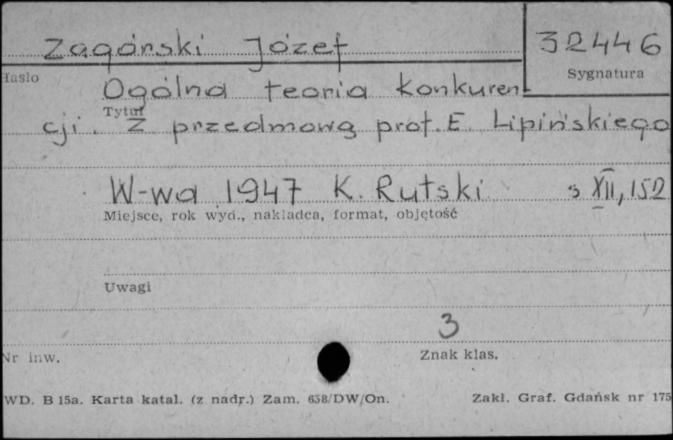 Zagórski Józef
32446
Hasło
Sygnatura
Ogólna teoria konkuren-
Tytuł
cji. Z przedmową prof. E. Lipińskiego
W-wa 1947 K. Rutski s XII, 152
Miejsce, rok wyd., nakładca, format, objętość
Uwagi
3
Nr inw.
Znak klas.
WD. B 15a. Karta katal. (z nadr.) Zam. 658/DW/On.
Zakł. Graf. Gdańsk nr 175